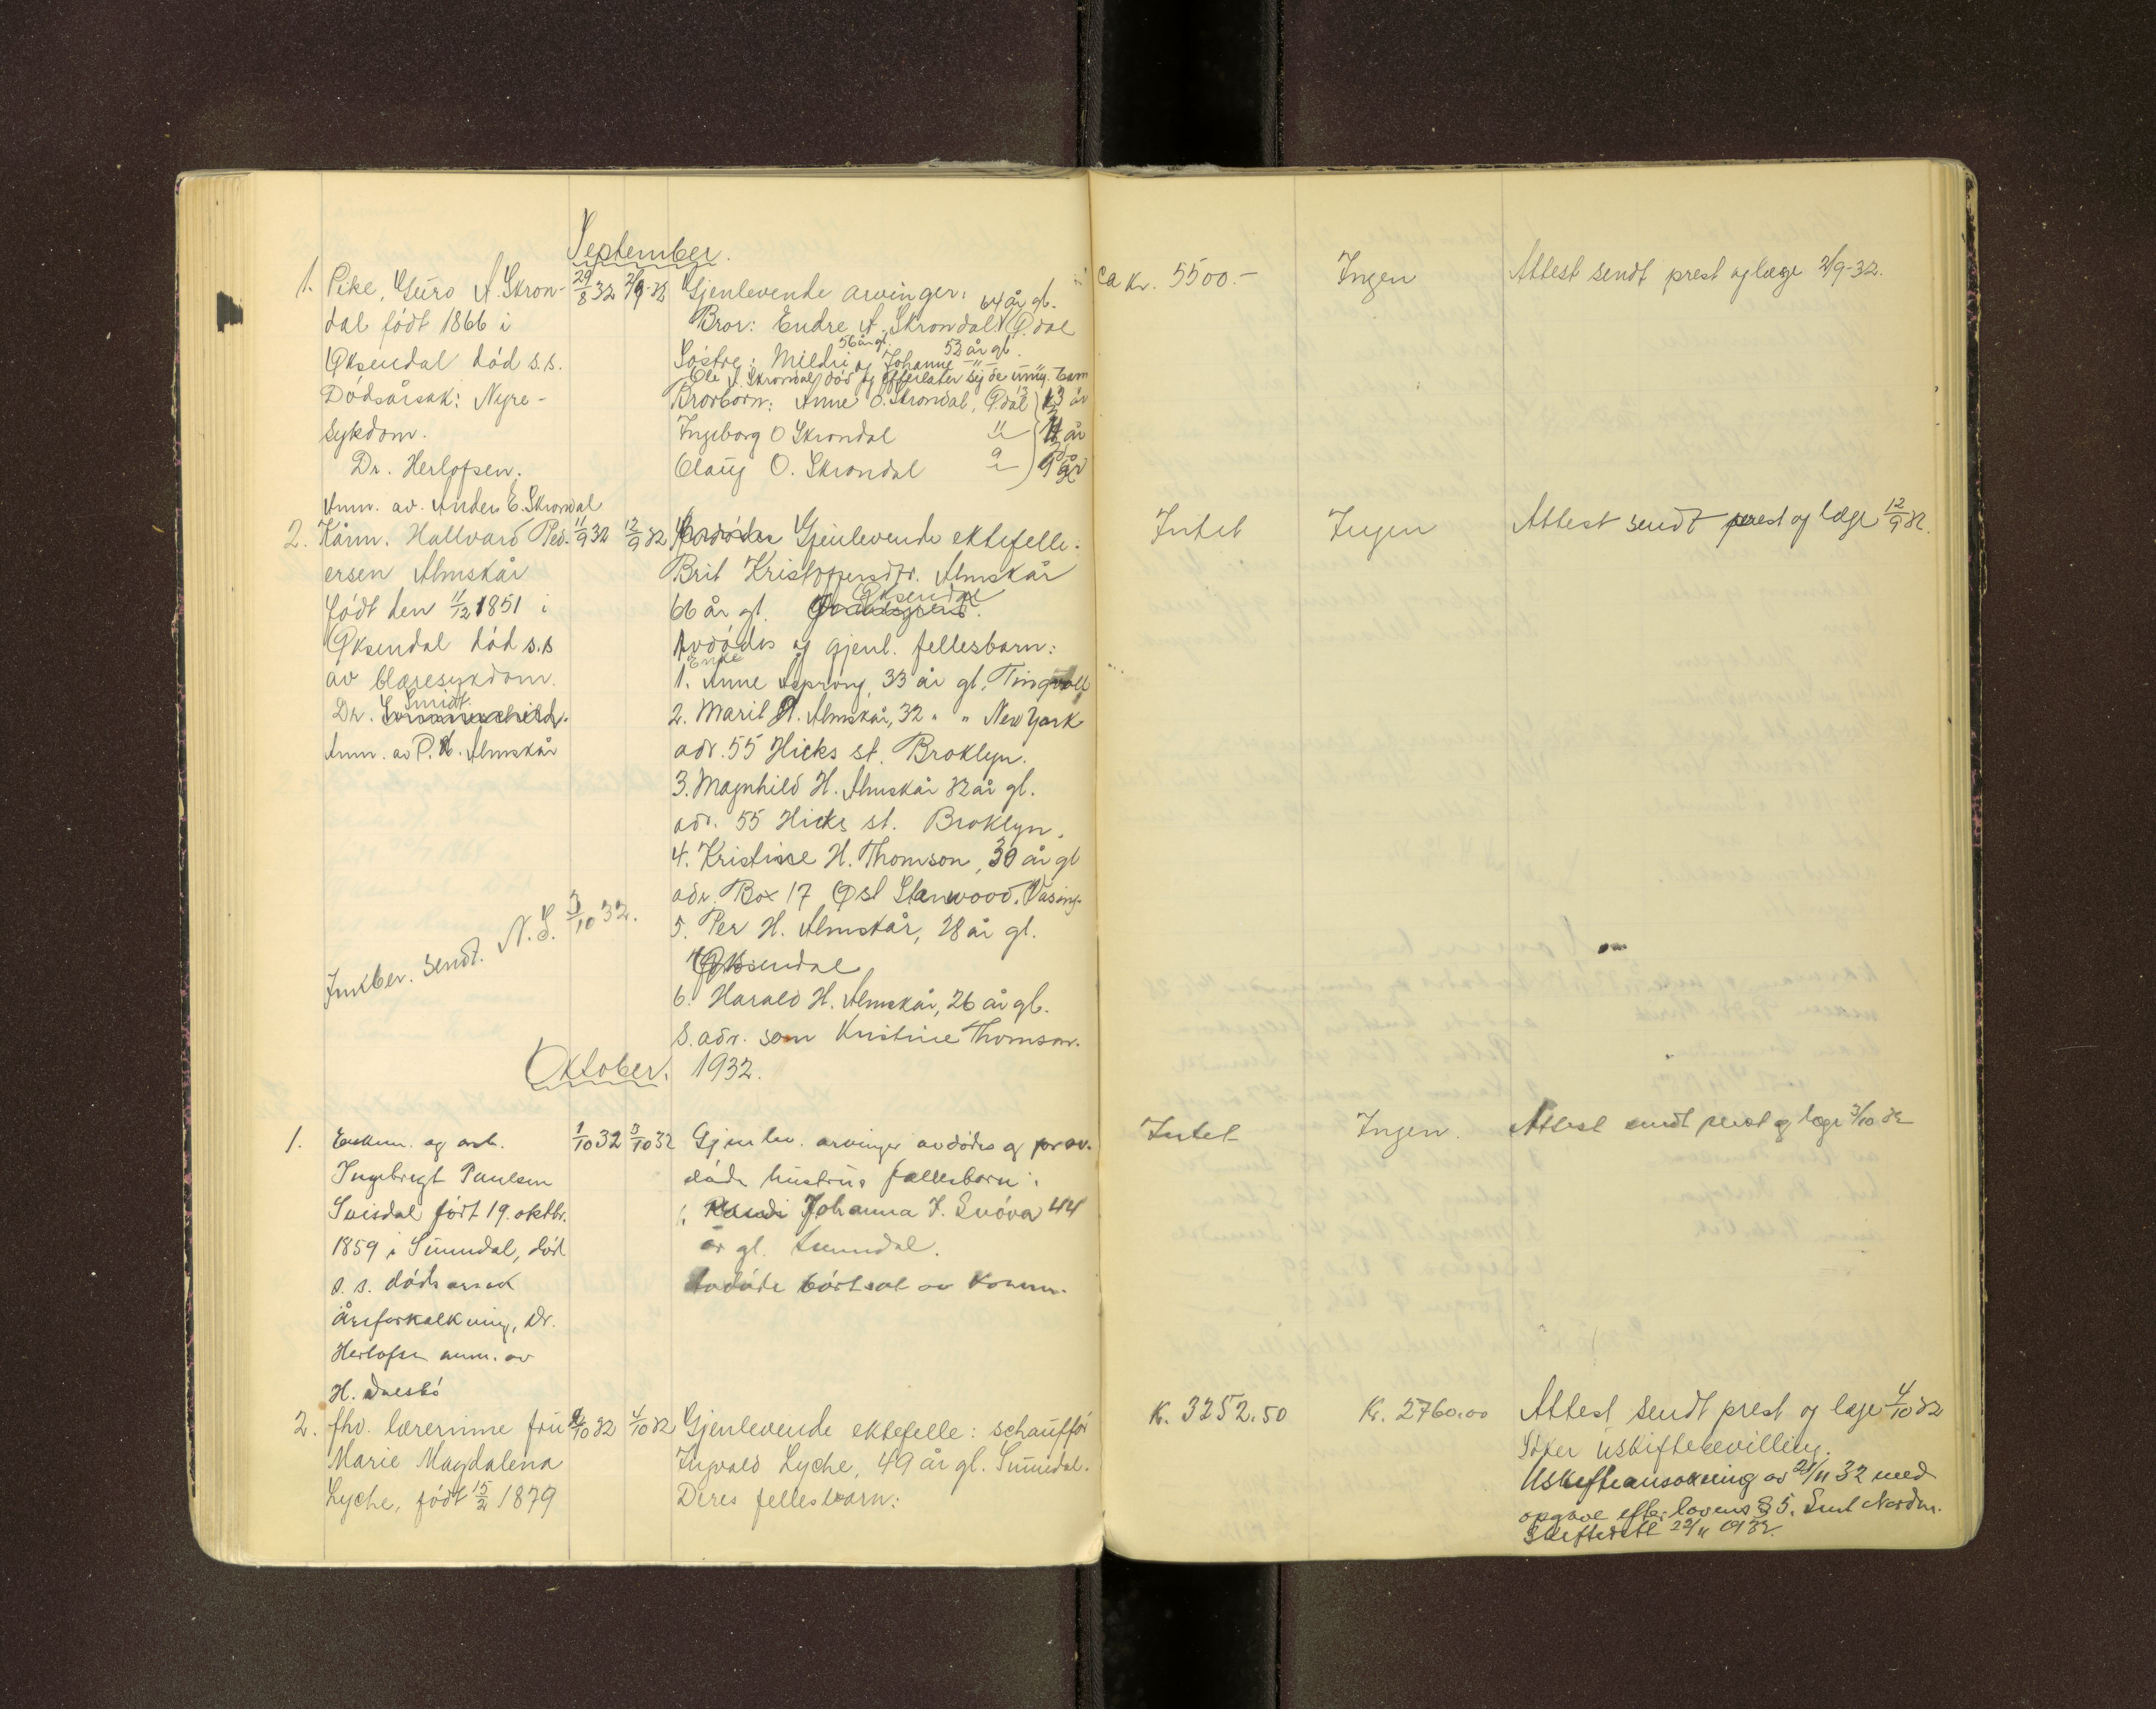 September.
1. Pike, Guro A. Skron- 29/8 32 2/9-32 Gjenlevende arvinger: ca kr. 5500.- Ingen Attest sendt prest og læge 2/9-32.
64 år gl.
dal født 1866 i Bror: Endre A. Skrondal, Ø.dal
56 år gl. 52 år gl.
Øksendal død s.s. Søstre: Mildri og Johanne -"-
Ole A. Skrondal død og efterlater sig de umy. barn
Dødsårsak: Nyre- Brorbarn: Anne O. Skrondal, Ø.dal 13 år
sykdom. Ingeborg O Skrondal " 11 år
Dr. Herlofsen. Olaug O. Skrondal " 9 år
Anm. av. Anders E. Skrondal
2. Kårm. Hallvard Ped- 11/9 32 12/9 32 Gjenlevende ektefelle: Intet Ingen Attest sendt prest og læge 12/9 32.
ersen Almskår Brit Kristoffersdtr. Almskår
født den 11/12 1851 i 66 år gl. Øksendal
Øksendal død s.s Avdødes og gjenl. fellesbarn:
Enke
av blæresykdom. 1. Anne Asprong, 33 år gl, Tingvoll
Dr. Smidt. 2. Marit H. Almskår, 32 " " New York
Anm. av P. H. Almskår adr. 55 Hicks st. Broklyn.
3. Magnhild H. Almskår 32 år gl.
adr. 55 Hicks st. Broklyn.
4. Kristine H. Thomson, 30 år gl
adr. Box 17 Øst Stanwood. Vasing.
Innber. sendt. N. S. 3/10 32. 5. Per H. Almskår, 28 år gl.
Øksendal
6. Harald H. Almskår, 26 år gl.
S. adr. som Kristine Thomson.
Oktober. 1932.
1. Enkem. og arb. 1/10 32 3/10 32 Gjenlev. arvinger avdødes og forav- Intet Ingen. Attest sendt prest og læge 3/10 32
Ingebrigt Paulsen døde hustrus fellesbarn:
født 19. oktbr. 1. Johanna I. Snøva 44
1859 i Sunndal, død år gl. Sunndal.
s. s. dødsarsak Avdøde bortsat av komm.
åreforkalkning, Dr.
Herlofsen anm. av
H.
2. fhv. lærerinne fru 2/10 32 4/10 32 Gjenlevende ektefelle: schaufför Kr. 3252.50 Kr. 2760.00 Attest sendt prest og læge 4/10 32
Marie Magdalena Ingvald Lyche, 49 år gl. Sunndal. Søker uskiftebevilling.
Lyche, født 15/2 1879 Deres fellesbarn: Uskifteansøkning av 21/11 32 med
opgave efter lovens § 5. Sent Nordm.
Skifterett 22/11 1932.